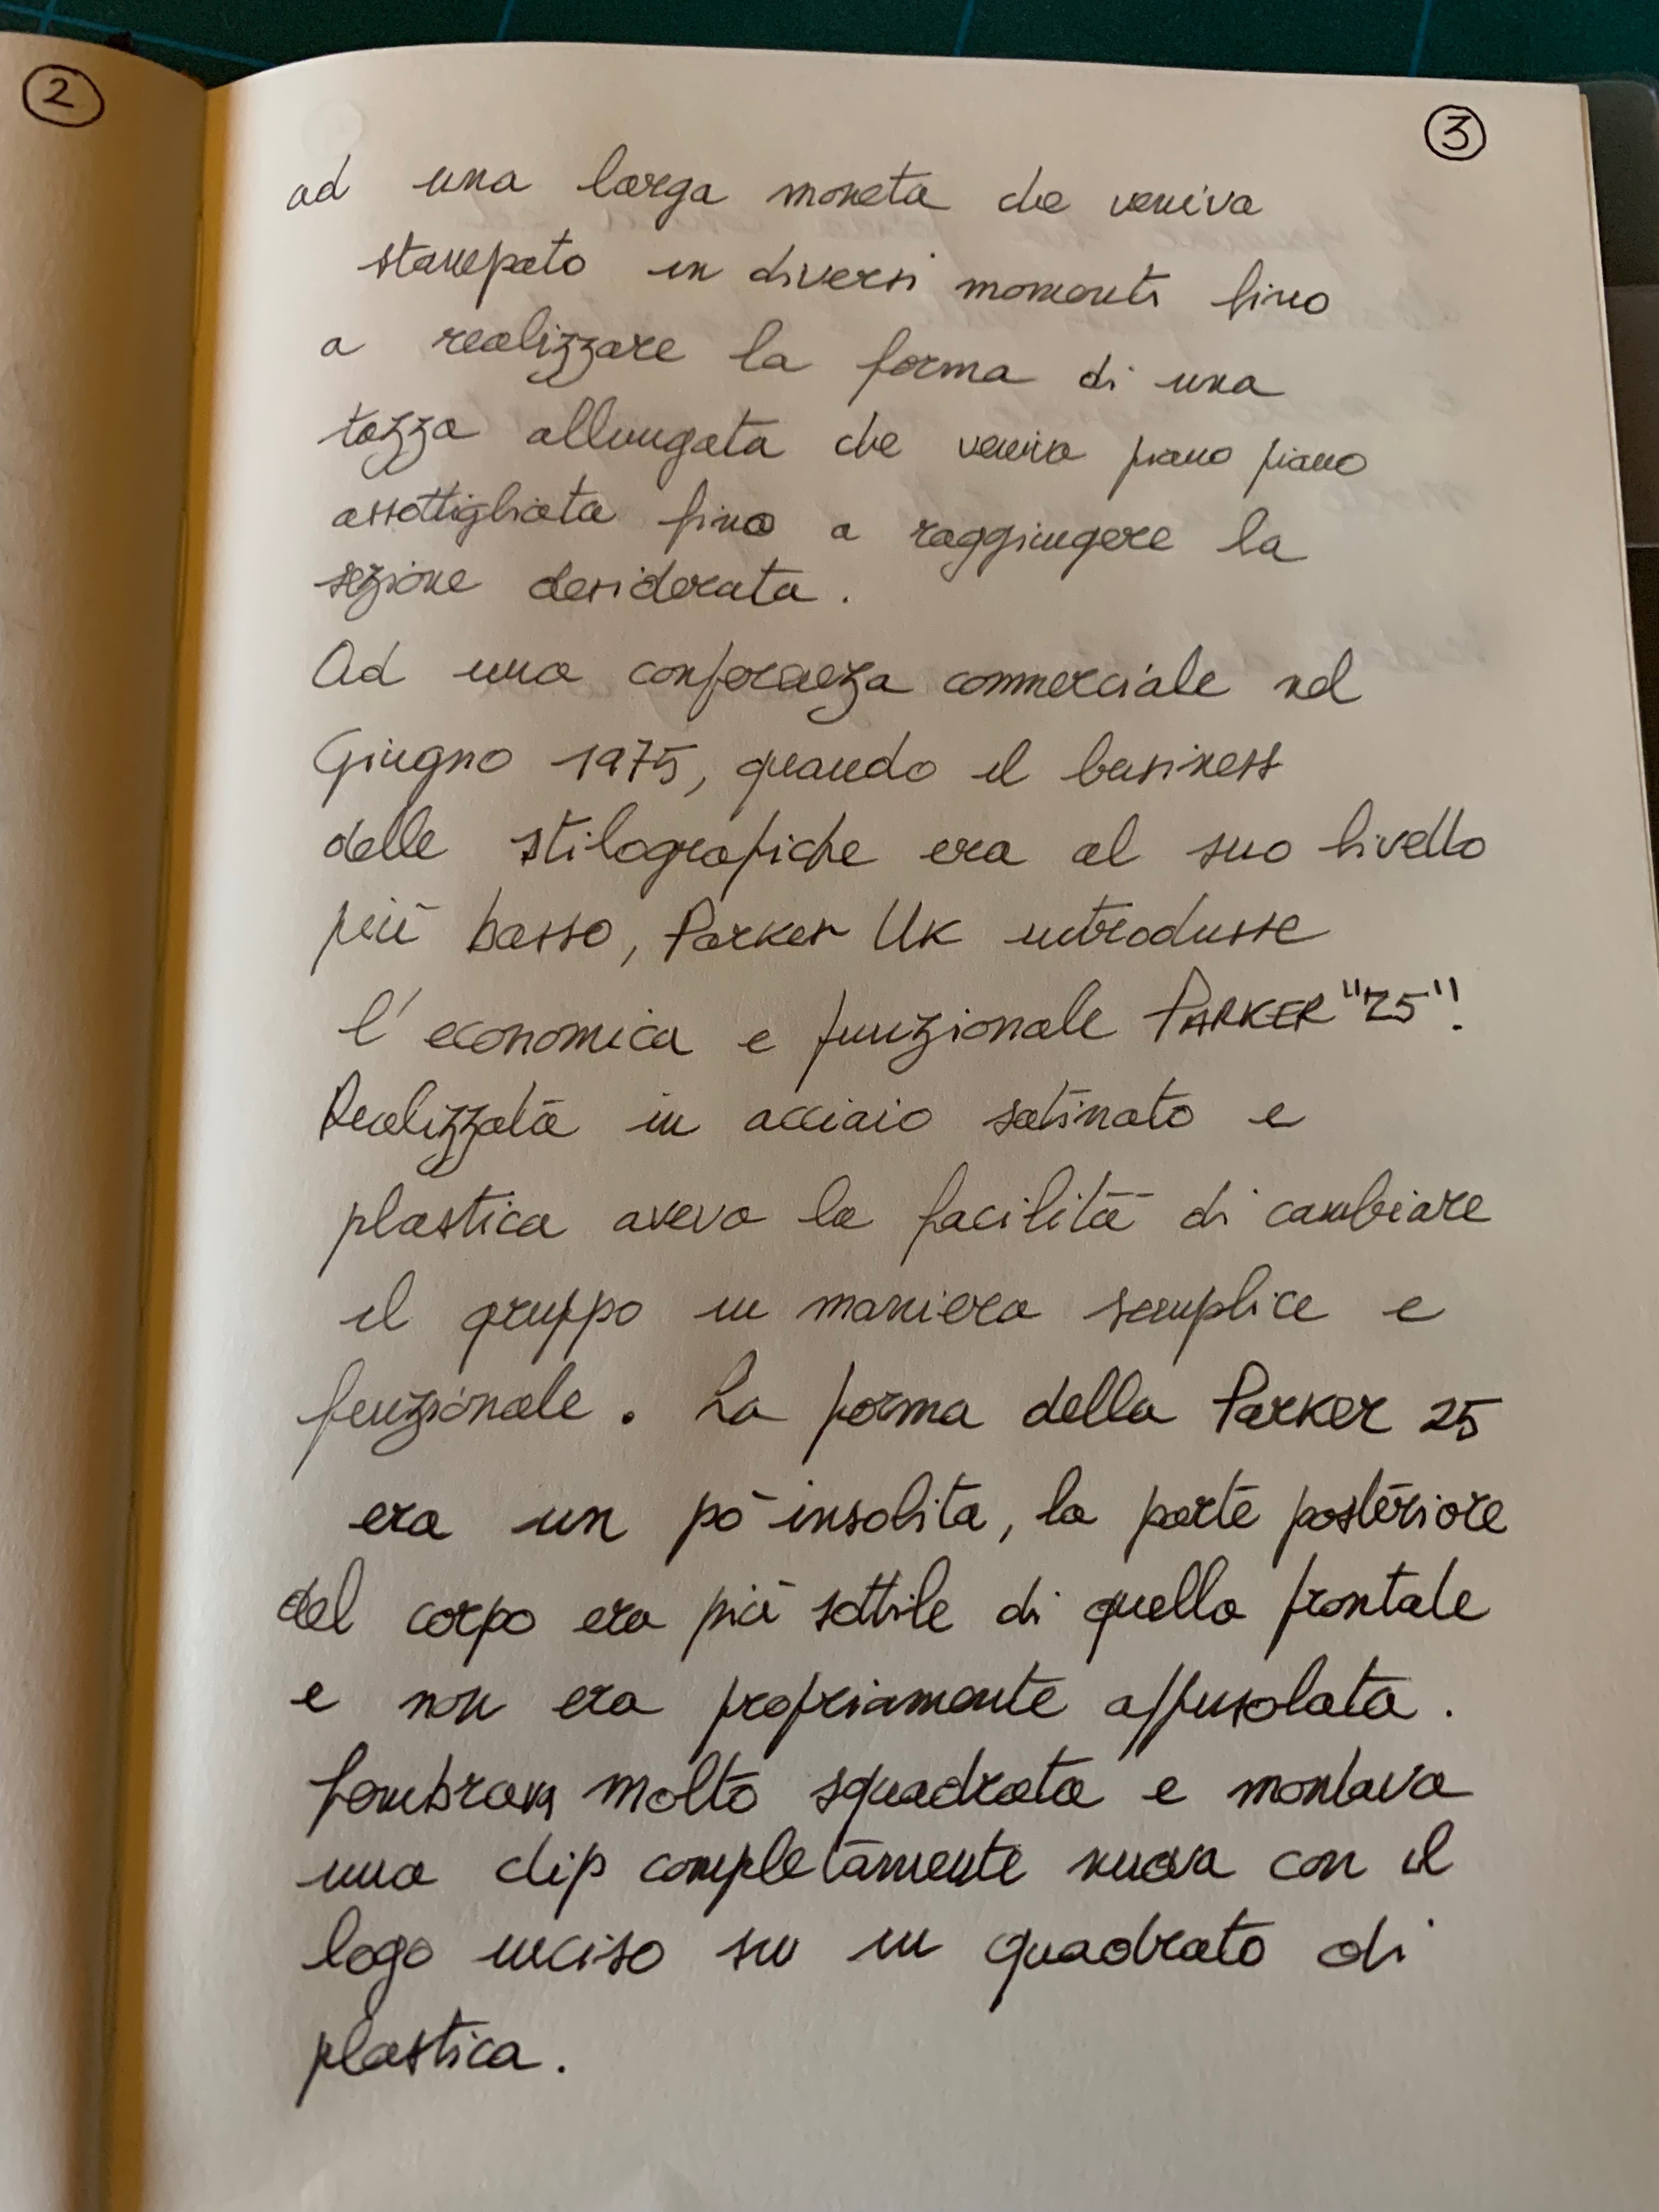 2
3
ad una larga moneta che veniva
stampato in diversi momenti fino
a realizzare la forma di una
tazza allungata che veniva piano piano
assottigliata fino a raggiungere la
sezione desiderata.
Ad una conferenza commerciale nel
Giugno 1975, quando il business
delle stilografiche era al suo livello
più basso, Parker UK introdusse
l'economica e funzionale PARKER "25".
Realizzata in acciaio satinato e
plastica aveva la facilità di cambiare
il gruppo in maniera semplice e
funzionale. La forma della Parker 25
era un pò insolita, la parte posteriore
del corpo era più sottile di quella frontale
e non era propriamente affusolata.
Sembrava molto squadrata e montava
una clip completamente nuova con il
logo inciso su un quadrato di
plastica.